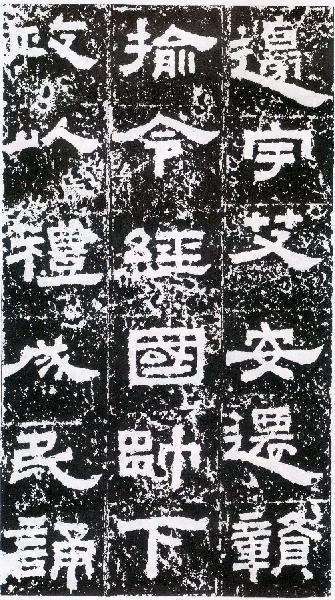 邊宇艾安遷贛
揄令經國帥下
政以禮成民誦